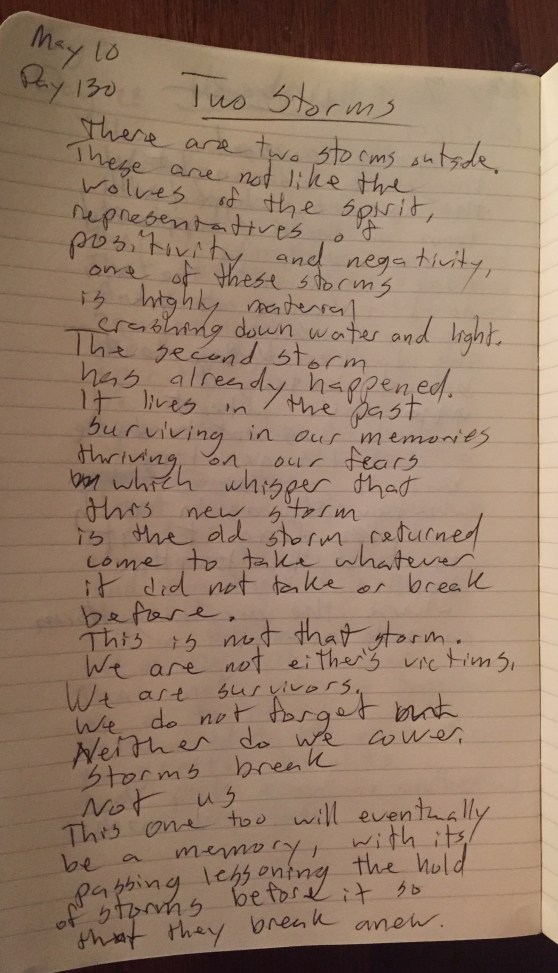 May 10
Day 130
Two Storms
There are two storms outside.
These are not like the
wolves of the spirit,
representatives of
positivity and negativity,
one of these storms
is highly material
crashing down water and light.
The second storm
has already happened.
It lives in the past
surviving in our memories
thriving on our fears
which whisper that
this new storm
is the old storm returned
come to take whatever
it did not take or break
before.
This is not that storm.
We are not either's victims.
We are survivors.
We do not forget
Neither do we cower.
Storms break
Not us
This one too will eventually
be a memory, with its
passing lessoning the hold
of storms before it so
that they break anew.